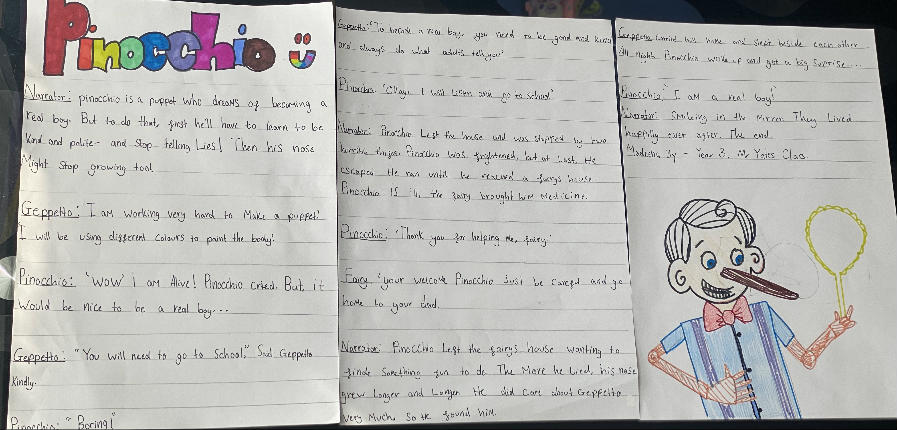 Pinocchio
Narrator: pinocchio is a puppet who dreams of becoming a
real boy. But to do that, first he'll have to learn to be
kind and polite - and stop telling Lies! Then his nose
Might stop growing too!
Geppetto: I am working very hard to Make a puppet!
I will be using different colours to paint the body!
Pinocchio: 'WOW' i am Alive! Pinocchio cried. But it
would be nice to be a real boy...
Geppetto: "You will need to go to School," Said Geppetto
kindly.
Pinocchio: "Boring!"
Geppetto: "To become a real boy, you need to be good and kind
and always do what adults tell you"
Pinocchio: "Okay, I will listen and go to school"
Narrator: Pinocchio Left the house and was stopped by two
horrible thieves. Pinocchio was frightened, but at Last. He
escaped. He ran until he reached a fairy's house
Pinocchio If ill, the fairy brought him medicine.
Pinocchio: 'Thank you for helping me, fairy'
Fairy: 'your welcome Pinocchio Just be careful and go
home to your dad.
Narrator: Pinocchio Left the fairy's house wanting to
finde something fun to do. The More he Lied, his nose
grew Longer and Longer He did Care about Geppetto
very Much. So He found him.
Geppetto him home and slept beside each other
All night. Pinocchio woke up and got a big surprise...
Pinocchio: "I am a real boy!"
Narrator: Smileing in the mirror They Lived
happily ever after. The end.
Year 3, Class.